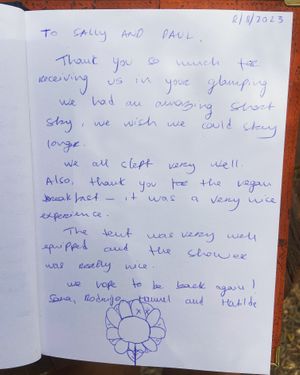 8/8/2023
TO SALLY AND PAUL,
Thank you so much for
receiving us in your glamping
we had an amazing short
stay, we wish we could stay
longer.
we all slept very well.
Also, thank you for the vegan
breakfast – it was a very nice
experience.
The tent was very well
equipped and the shower
was really nice.
we hope to be back again!
Sara, Rodrigo, and Matilde